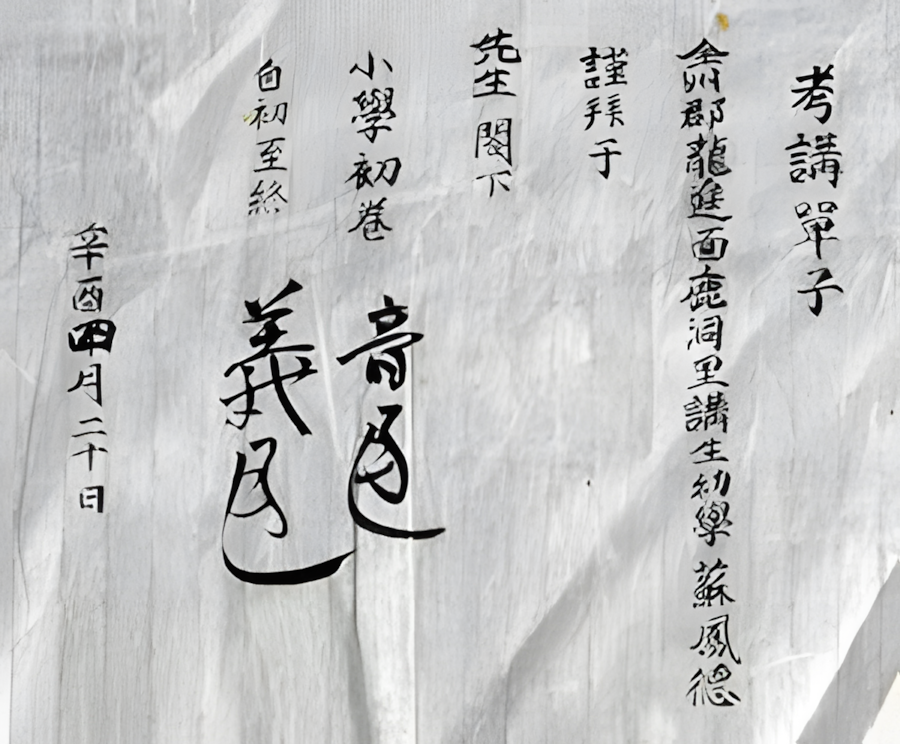 考講單子
全州郡龍進面鹿洞里講生幼學 蘇鳳德
謹拜于
先生 閤下
小學初卷 音通
自初至終 義通
辛酉四月二十日